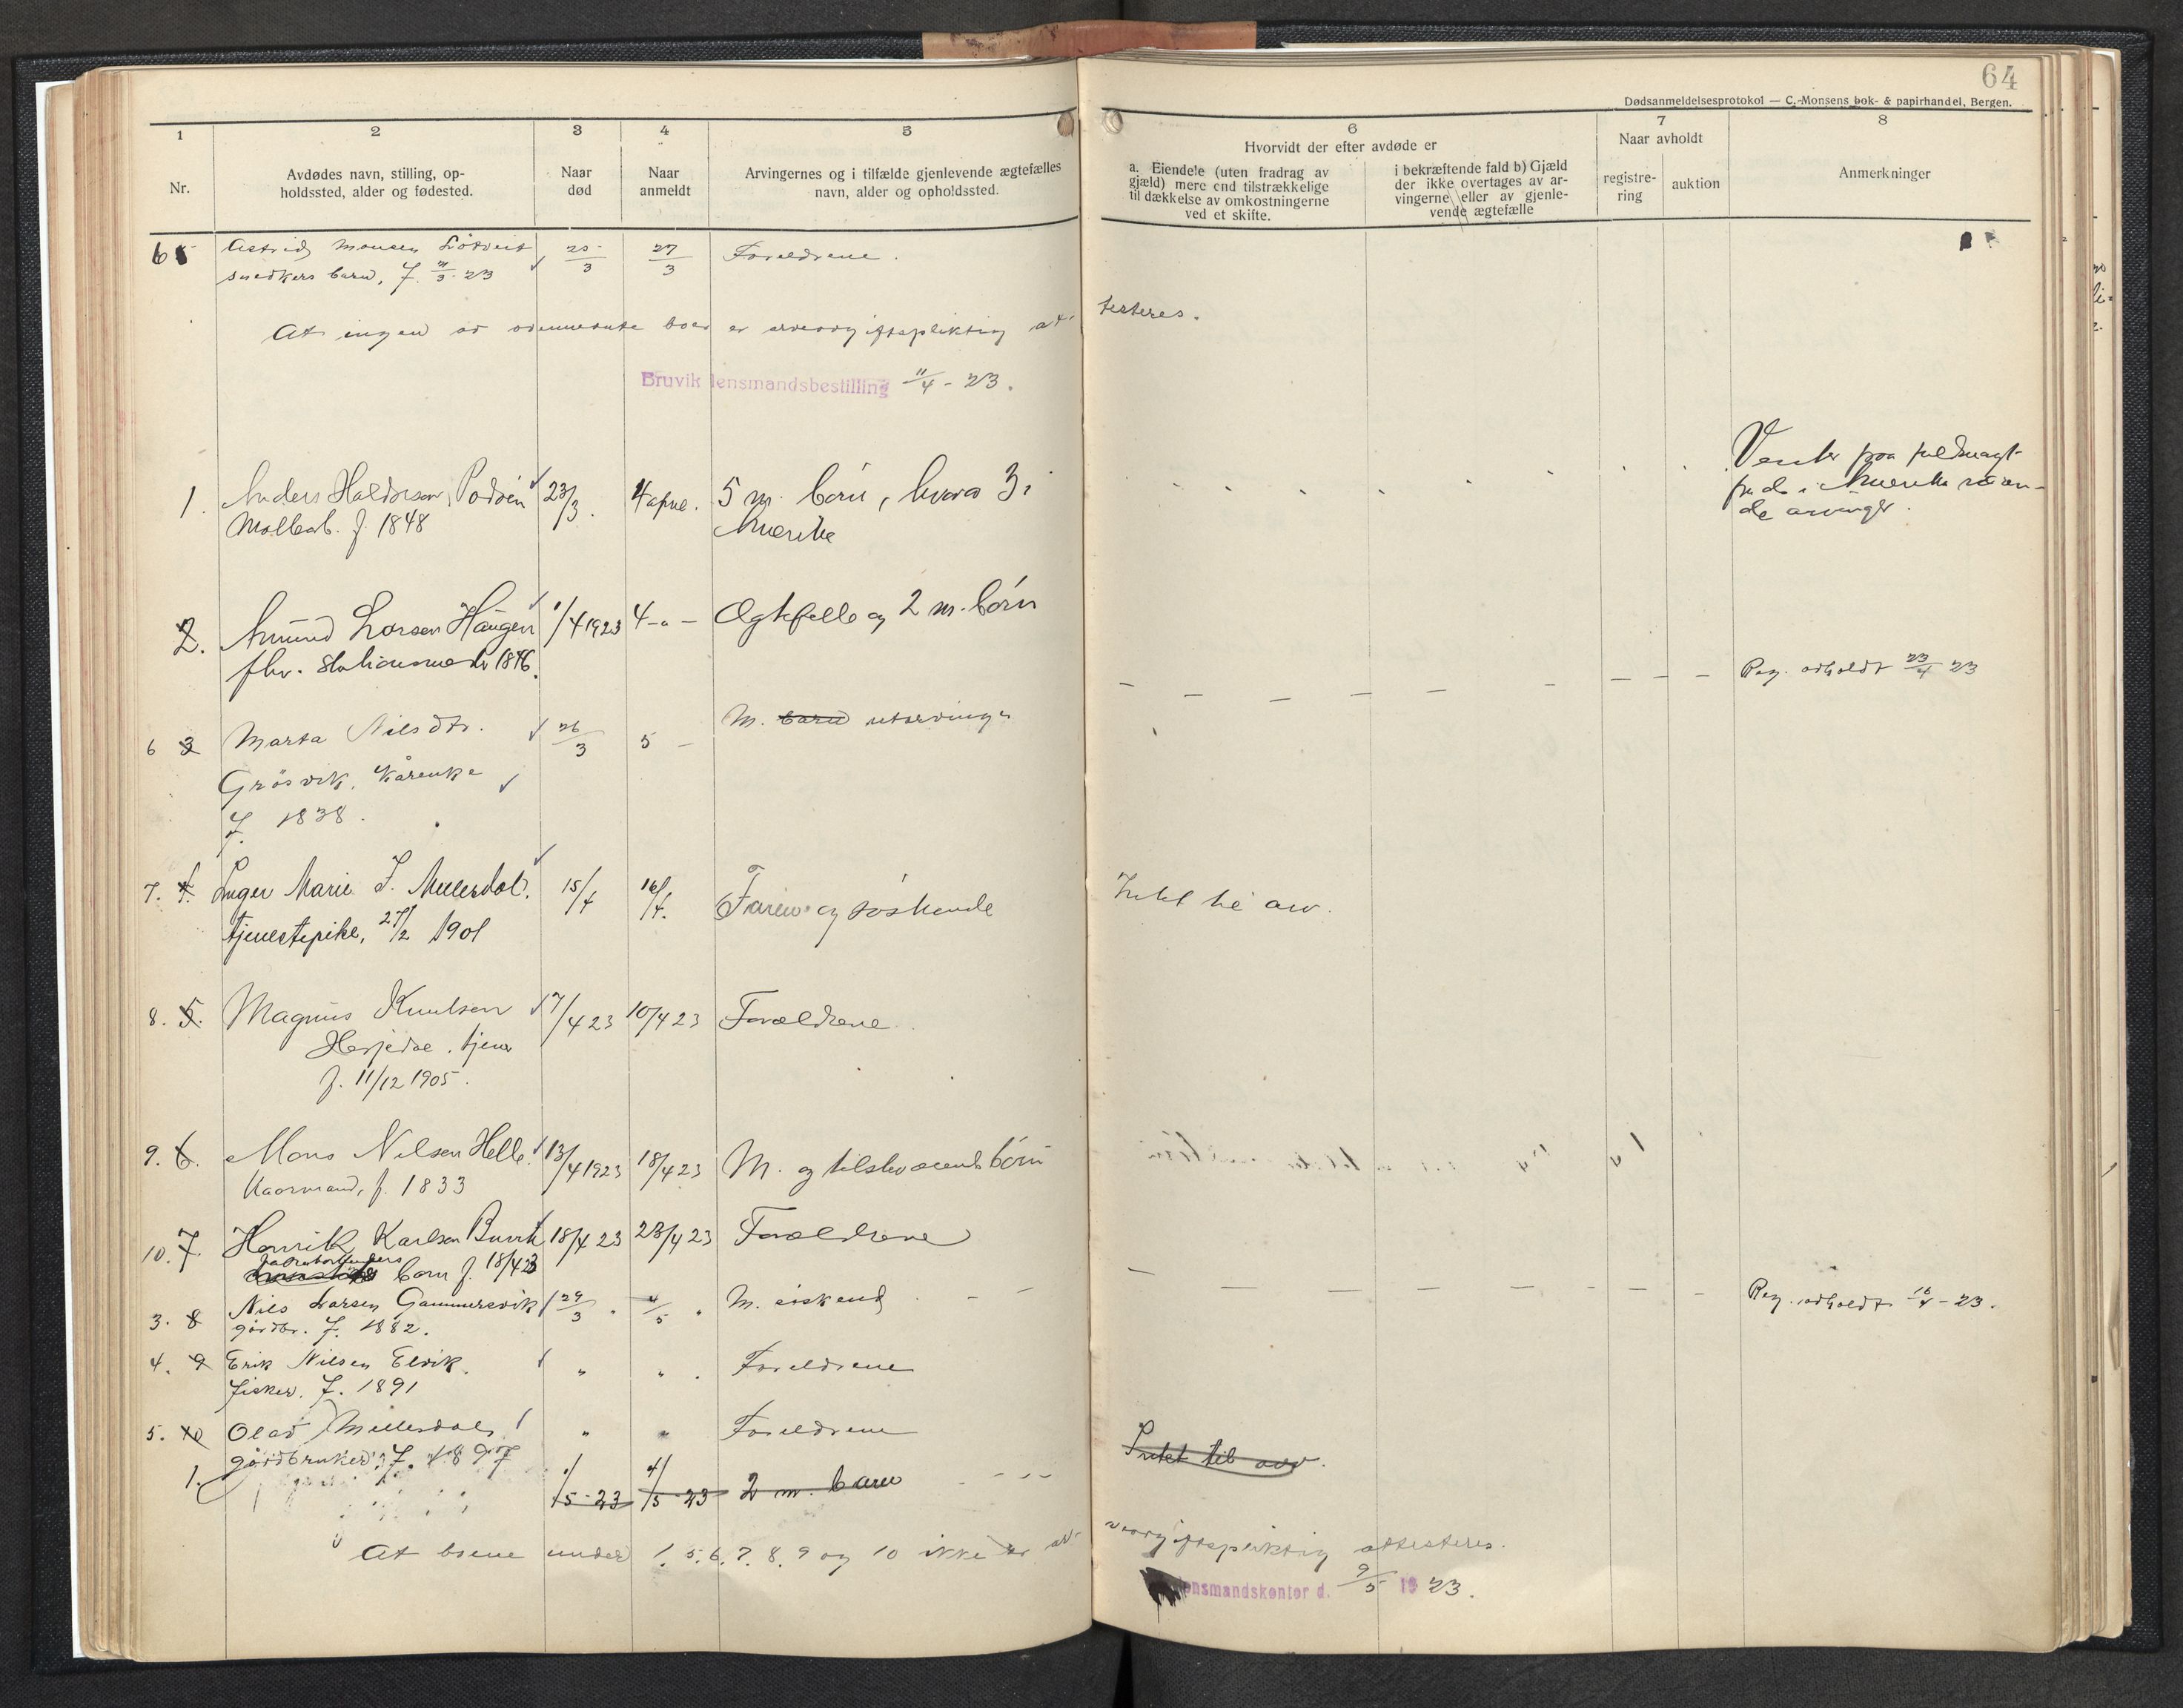 64
Dødsanmeldelsesprotokol — C. Monsens bok- & papirhandel, Bergen.
1
2
3
4
5
6
7
8
Nr.
Avdødes navn, stilling, op-
holdssted, alder og fødested.
Naar
død
Naar
anmeldt
Arvingernes og i tilfælde gjenlevende ægtefælles
navn, alder og opholdssted.
Hvorvidt der efter avdøde er
a. Eiendele (uten fradrag av
gjæld) mere end tilstrækkelige
til dækkelse av omkostningerne
ved et skifte.
i bekræftende fald b) Gjæld
der ikke overtages av ar-
vingerne eller av gjenle-
vende ægtefælle
Naar avholdt
registre-
ring
auktion
Anmerkninger
Astrid Monsen Løtveit 25/3 27/3 Forældrene.
snedkers barn, f. /3-23
At ingen av ovennevnte boer er arveavgiftspliktig at-
testeres.
Bruvik lensmandsbestilling 11/4-23.
1. Anders Haldorsen 23/3. 4 april. 5 m. børn, hvorav 3 i
f. 1848 Amerika
Venter paa fuldmagt
fra de i Amerika væren-
de arvinger.
2. Amund Larsen Haugen 1/4 1923 4 -"- Ægtefælle og 2 m. børn
fhv. stationsmester 1846.
Reg. avholdt 23/4 23
6 3 Marta Nilsdtr. 26/3 5 - M. barn utarvinger
Grøsvik, kårenke
f. 1838.
7. 4. Inger Marie J. 15/4 16/4. Faren og søskende
tjenestepike, 27/2 1901
Intet til arv.
8. 5. Magnus Knutsen 7/4 23 10/4 23 Forældrene
Herfjedal. tjener
f. 11/12 1905.
9. 6. Mons Nilsen Helle. 13/4 1923 18/4 23 M. og tilstedeværende børn
Kaarmand, f. 1833
10. 7. Henrik Karlsen Bruvik 18/4 23 23/4 23 Forældrene
barn f. 18/4 23
3. 8 Nils Larsen Gammersvik 29/3 4/5 M. søskend
gårdbr. f. 1882.
Reg. avholdt 16/4-23.
4. 9 Erik Nilsen Elvik. " " Foreldrene
fisker. f. 1891
5. 10 Olav Mulesdal " " Foreldrene
gårdbruker, f. 1897
1. 1/5-23 4/5-23 2 m. barn
Intet til arv.
At boene under 1. 5. 6. 7. 8. 9 og 10 ikke er ar-
veavgiftspliktig attesteres.
lensmandskontor d. 9/5 1923.